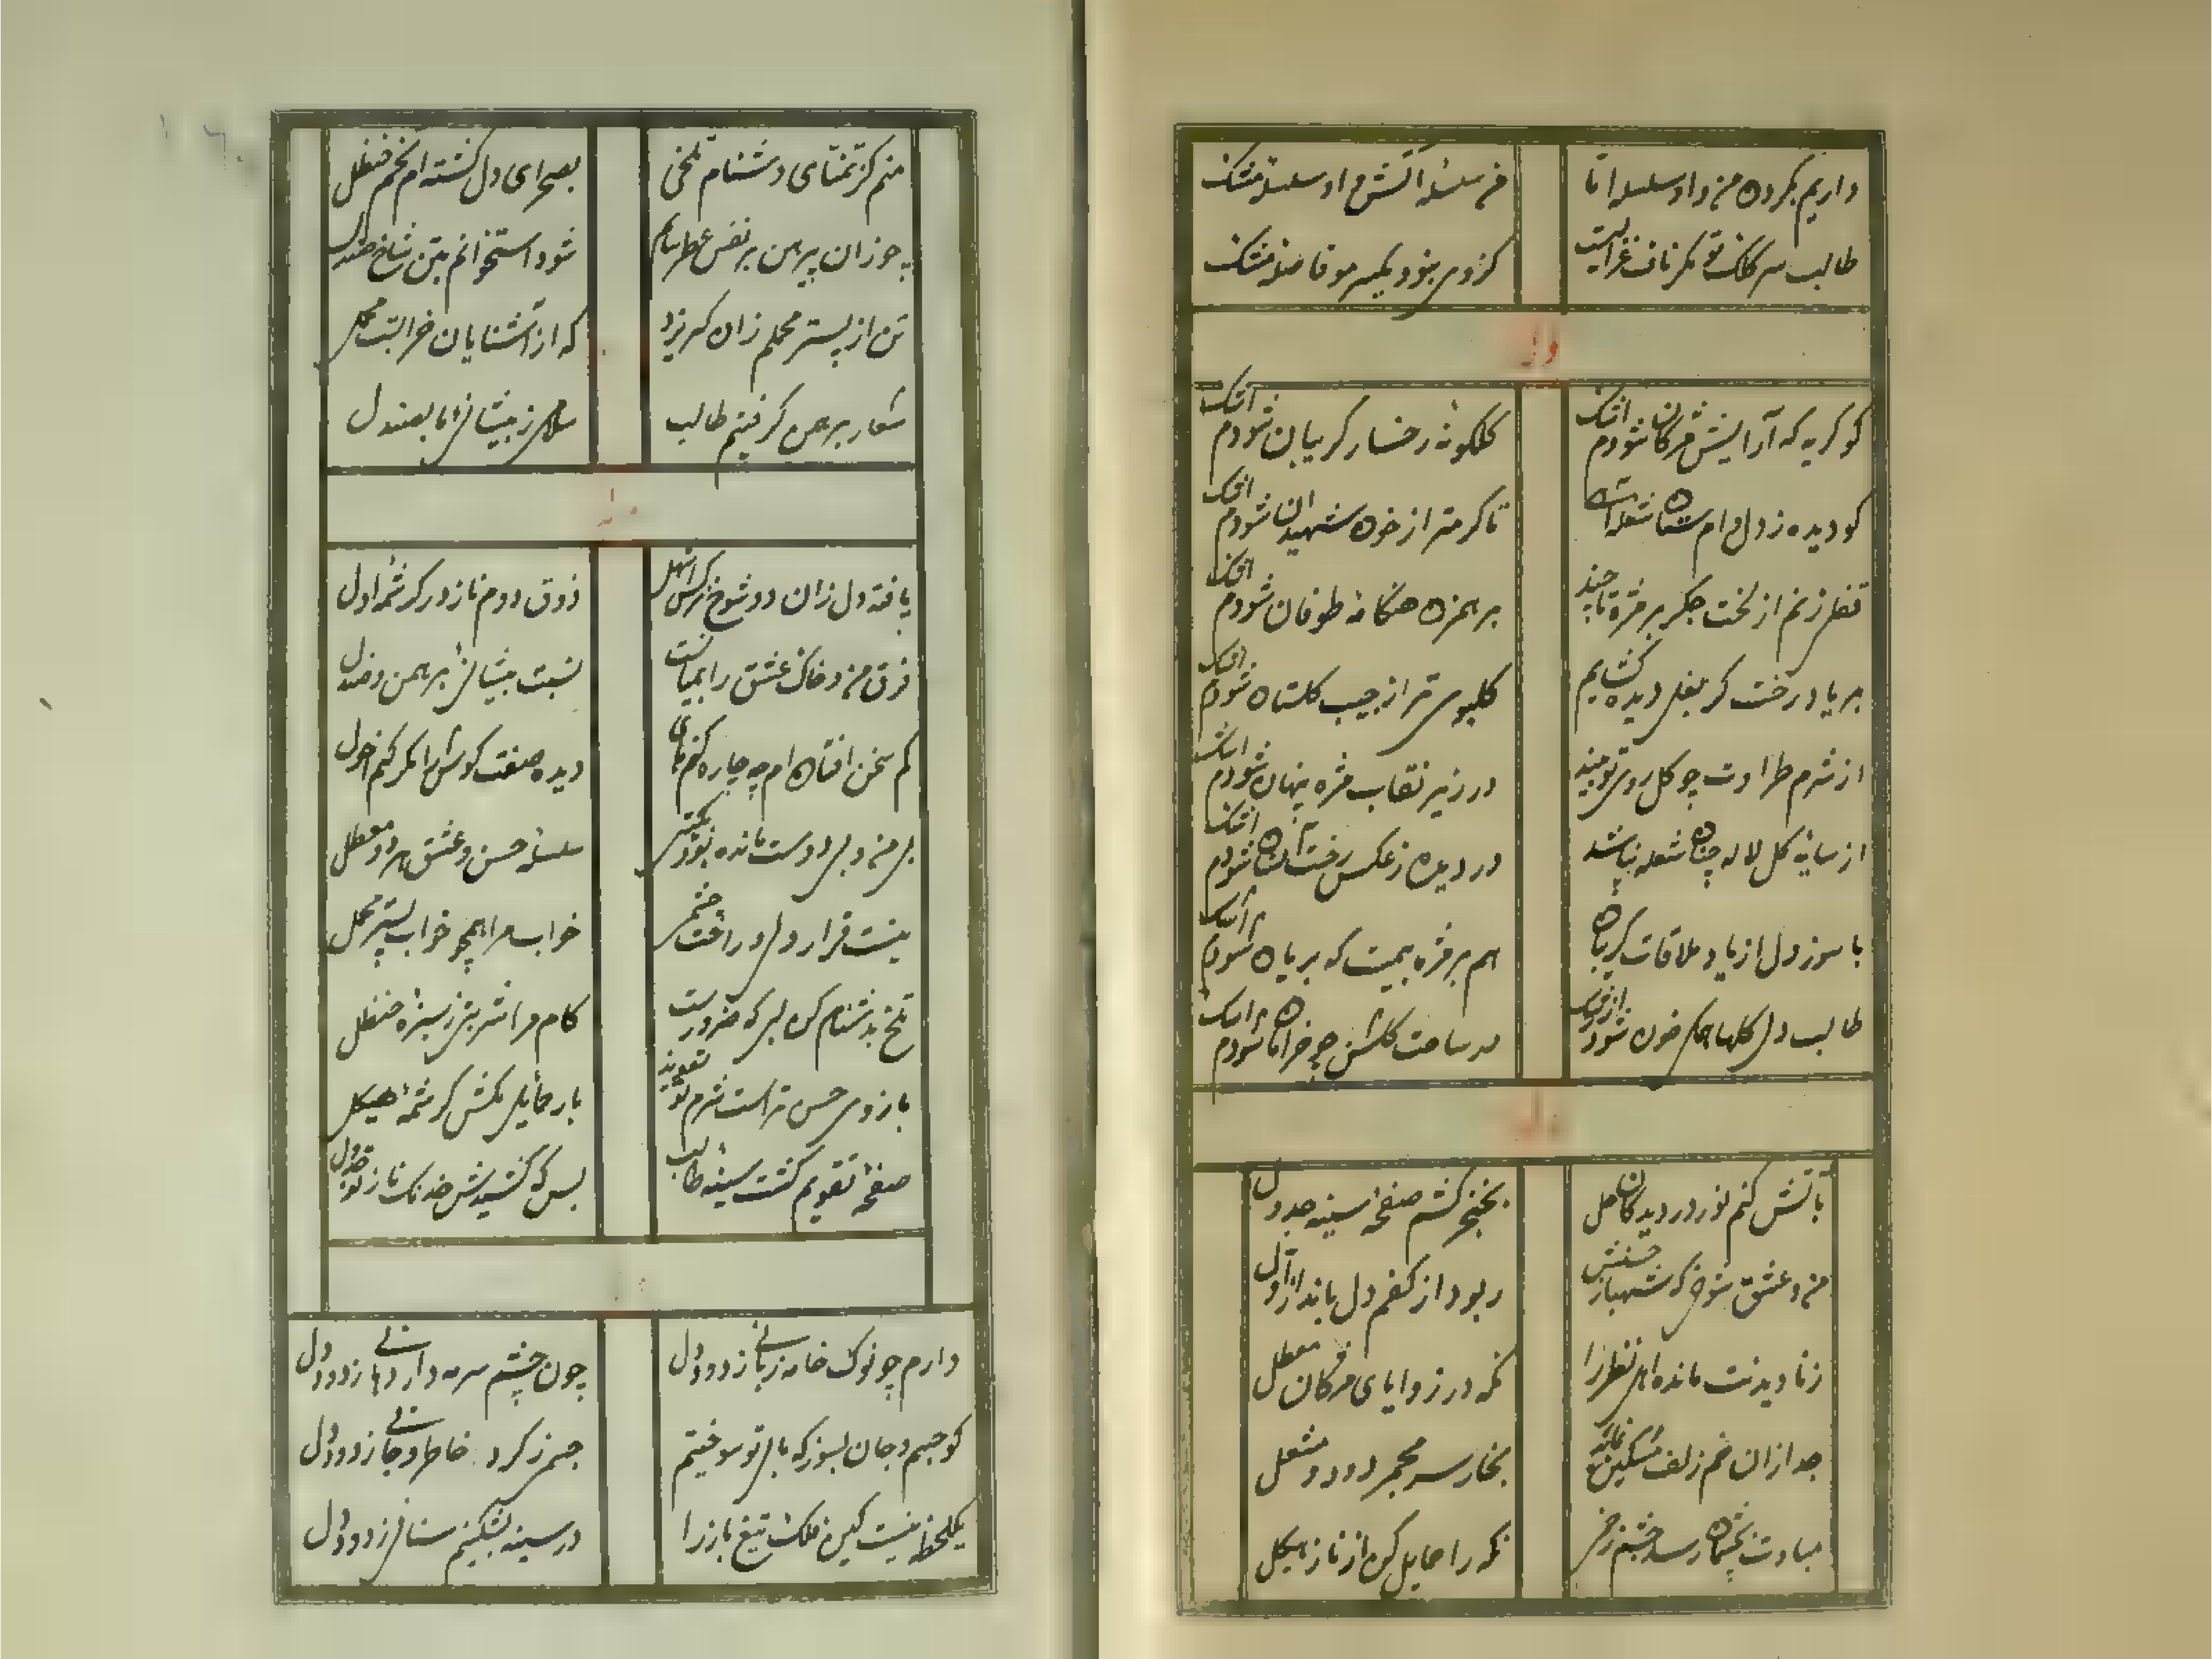 داریم بگردن من و او سلسله اما
من سلسله آتش و او سلسله مشک
طالب سر کلک تو مگر ناف غزالیست
کز وی بنود یکسر مو فاصله مشک
وله
کو گریه که آرایش مژگان شودم اشک
گلگونه رخسار گریبان شودم اشک
کو دیده ز دل وام ستان شعله
تا گرمتر از خون شهیدان شودم اشک
قفلی زنم از لخت جگر بر مژه تا چند
بر همزن هنگامه طوفان شودم اشک
بر یاد رخت گر بغلی دیده گشایم
گلبوی تر از جیب گلستان شودم اشک
از شرم طراوت چو گل روی تو بیند
در زیر نقاب مژه پنهان شودم اشک
از سایه گل لاله چنان شعله نباشد
در دیده ز عکس رخت شودم اشک
با سوز دل از یاد ملاقات گریبان
هم بر مژه بیمست که بریان شودم اشک
طالب دل گلها همه خون شود از رشک
در ساحت گلشن چو خرامان شودم اشک
وله
تا آتش کنم نوز در دیده کامل
بخنجر کشم صفحه سینه جدول
من و عشق شوخی که شهباز حسنش
ربود از کفم دل باند از اول
ز نادیدنت مانده ام نظر را
نگه در زوایای مژگان معطل
جدا زان خم زلف مشکین نماند
بخار سر مجمر دود و مشعل
مبادت بچشمان رسد چشم زخمی
نگه را حمایل کن از ناز هیکل
منم کز تمنای دشنام تلخی
بصحرای دل کشته ام تخم حنظل
چو زان پیرهن بر نفس عطر یابم
شود استخوانم بتن شاخ صندل
تن از بستر مخملم زان گریزد
که از آشنایان خوابست مخمل
شعار برهمن گرفتیم طالب
سلامی ز پیشانی ما بصندل
وله
یافته دل زان دو شوخ نرگس اشهل
ذوق دوم ناز در کرشمه اول
فرق من و خاک عشق را بمیانست
نسبت پیشانی برهمن و صندل
کم سخن افتاده ام چه چاره کنم های
دیده صفت گوش را مگر کنم احول
بی من و بی دوست مانده بود یکچند
سلسله حسن و عشق هر دو معطل
نیست قراری در آخت چشم
خواب مرا همچو خواب بستر مخمل
تلخ بدشنام کن لبی که ضرورست
کام مرا شربتی ز سبزه حنظل
بازوی حسن تراست شرم تو تعویذ
بار حمایل مکش کرشمه هیکل
صفحه تقویم گشت سینه طالب
بس که کشیدش خدنک ناز تو جدول
دارم چو نوک خامه زبانی ز دود دل
چون چشم سرمه دار دهانی ز دود دل
کو جسم و جان بسوز که بال تو سوختیم
جسمی ز گرد خاطر و جانی ز دود دل
یکلحظه نیست کین فلک تیغ باز را
در سینه نشکنیم سنانی ز دود دل